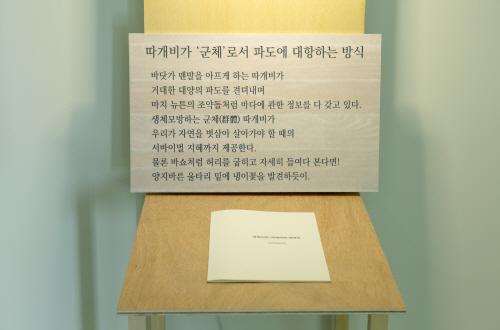 따개비가 '군체'로서 파도에 대항하는 방식
바닷가 맨발을 아프게 하는 따개비가
거대한 대양의 파도를 견뎌내며
마치 뉴튼의 조약돌처럼 바다에 관한 정보를 다 갖고 있다.
생체모방하는 군체(群體) 따개비가
우리가 자연을 벗삼아 살아가야 할 때의
서바이벌 지혜까지 제공한다.
물론 바쇼처럼 허리를 굽히고 자세히 들여다 본다면!
양지바른 울타리 밑에 냉이꽃을 발견하듯이.